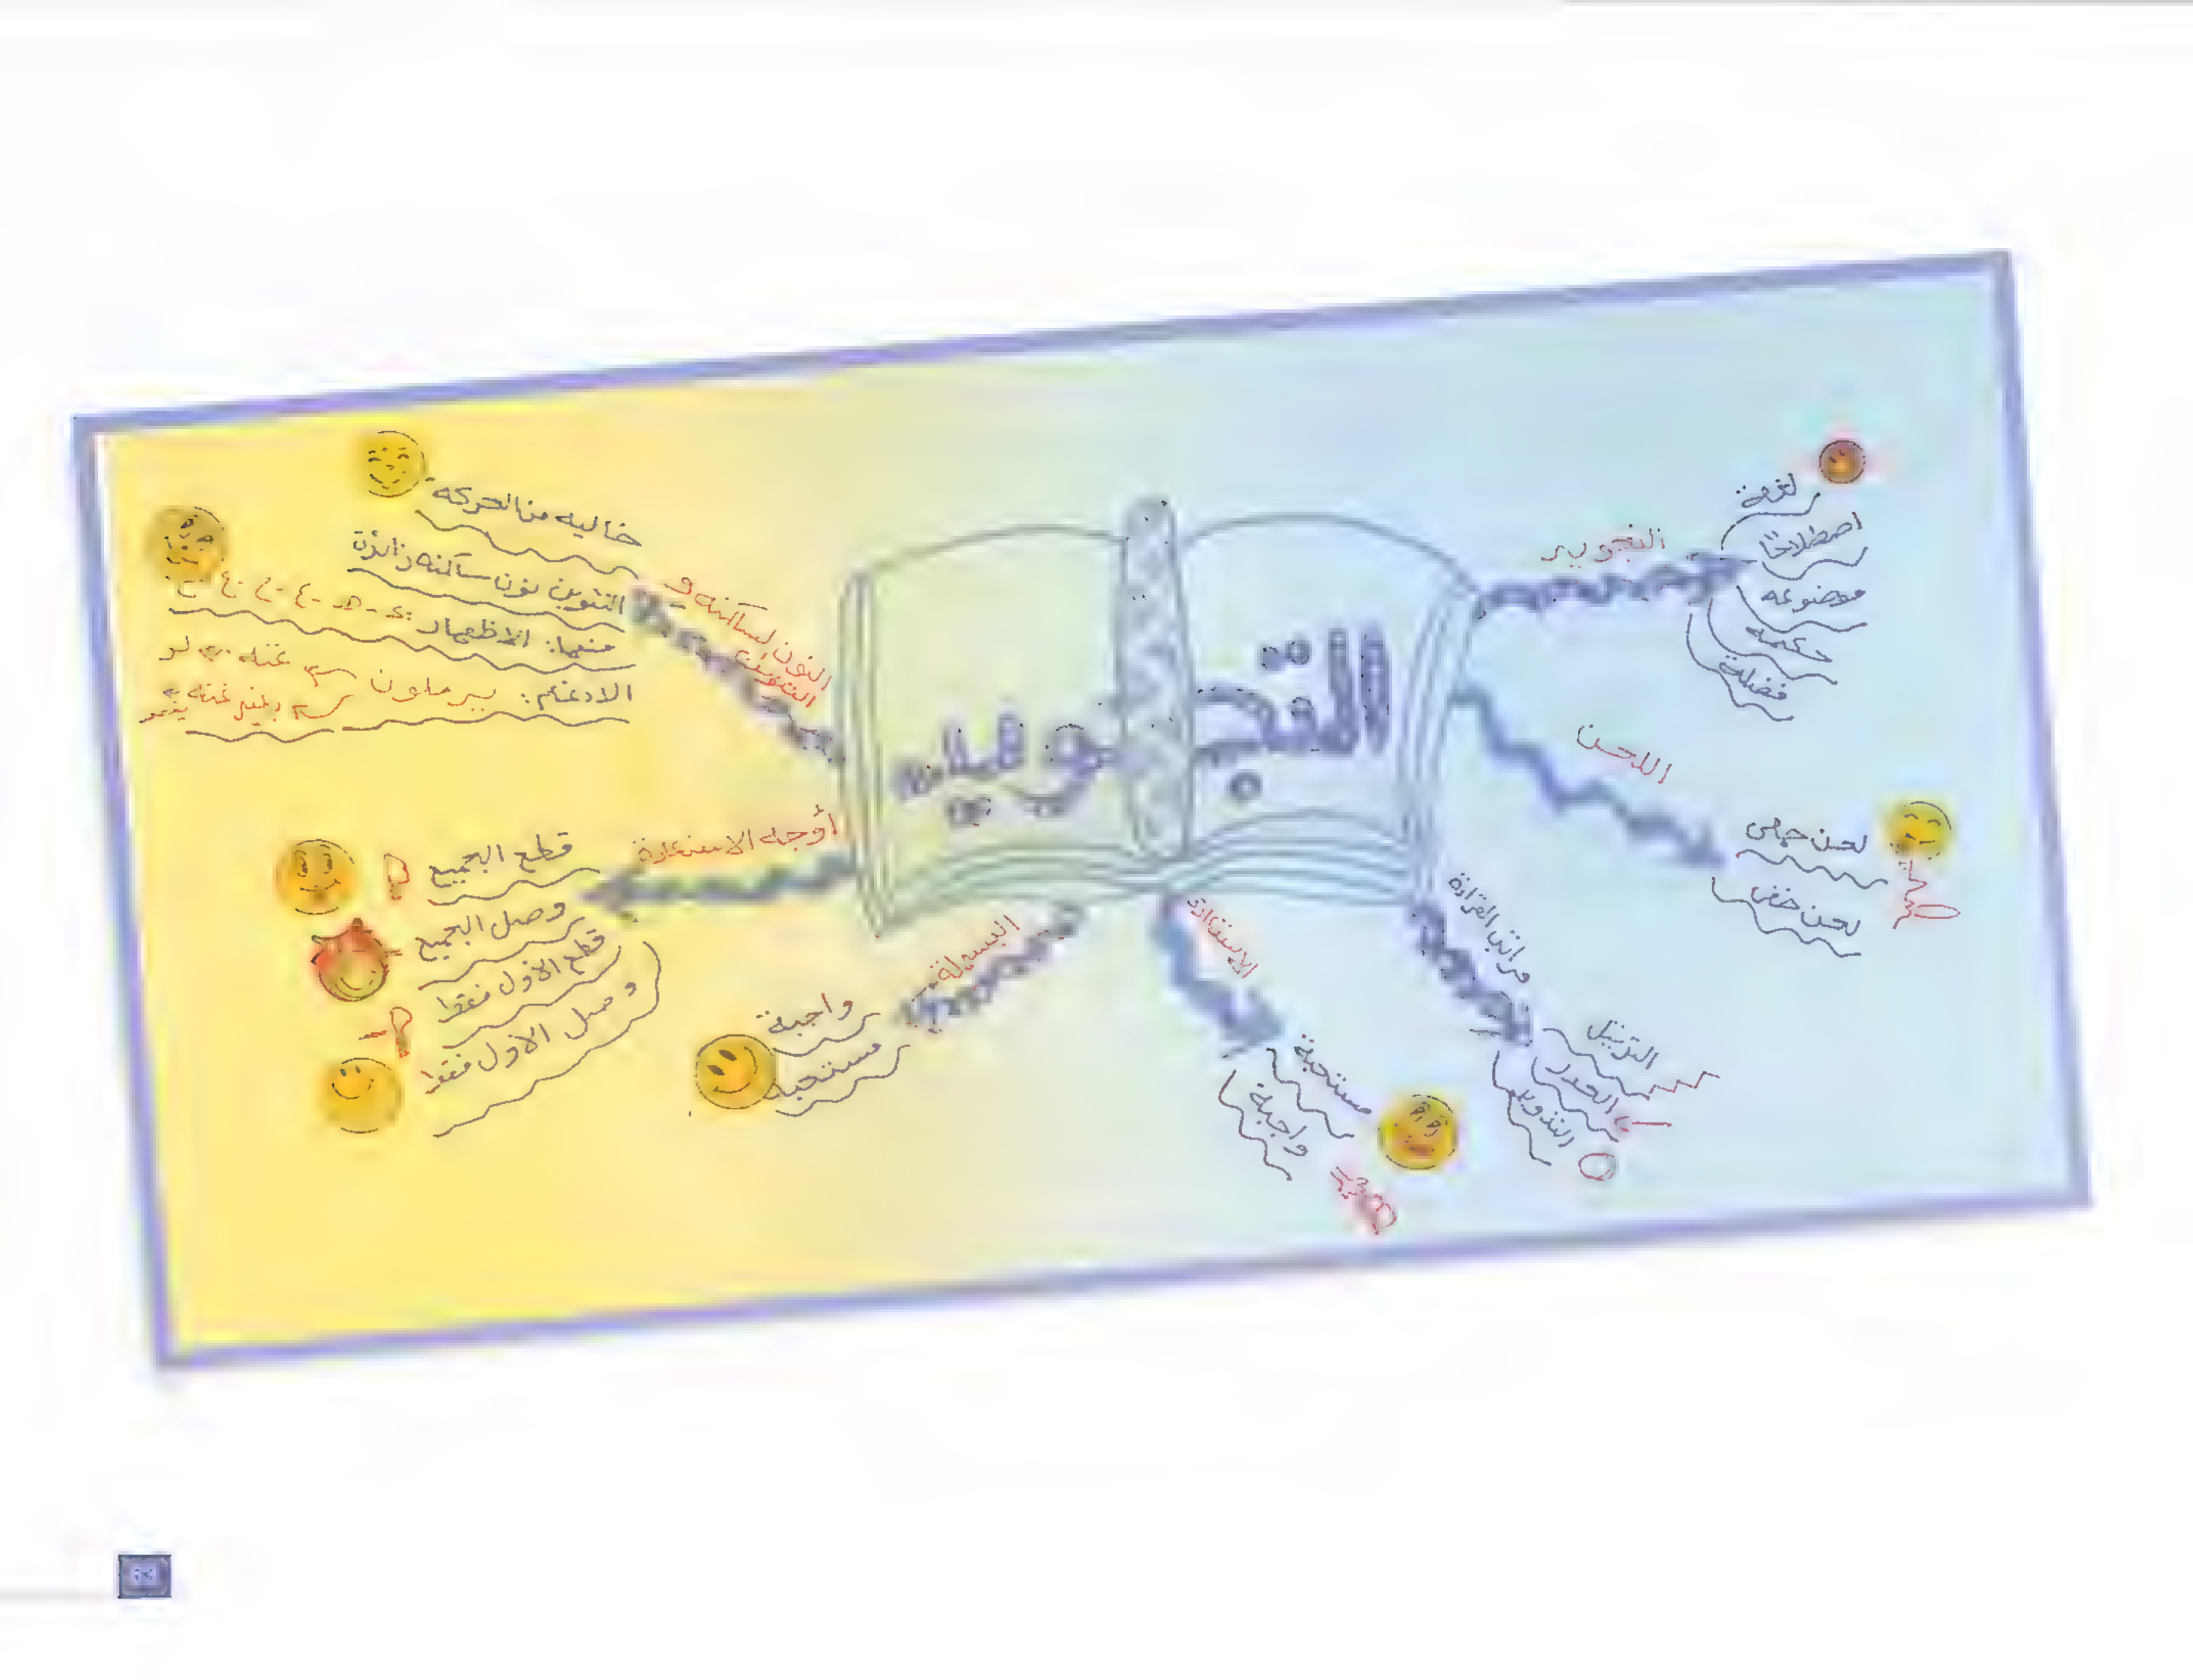 التجويد
التجويد
لغة
اصطلاحًا
موضوعه
حكمه
فضله
اللحن
لحن جلي
لحن خفي
مراتب القراءة
الترتيل
الحدر
التدوير
الاستعاذة
مستحبة
واجبة
البسملة
واجبة
مستحبة
أوجه الاستعاذة
قطع الجميع
وصل الجميع
قطع الأول فقط
وصل الأول فقط
النون الساكنة و
التنوين
خاليه من الحركه
التنوين نون ساكنه زائدة
منهما: الاظهار: ء - ه - ع - ح - غ - خ
الادغام: يرملون
بغير غنه